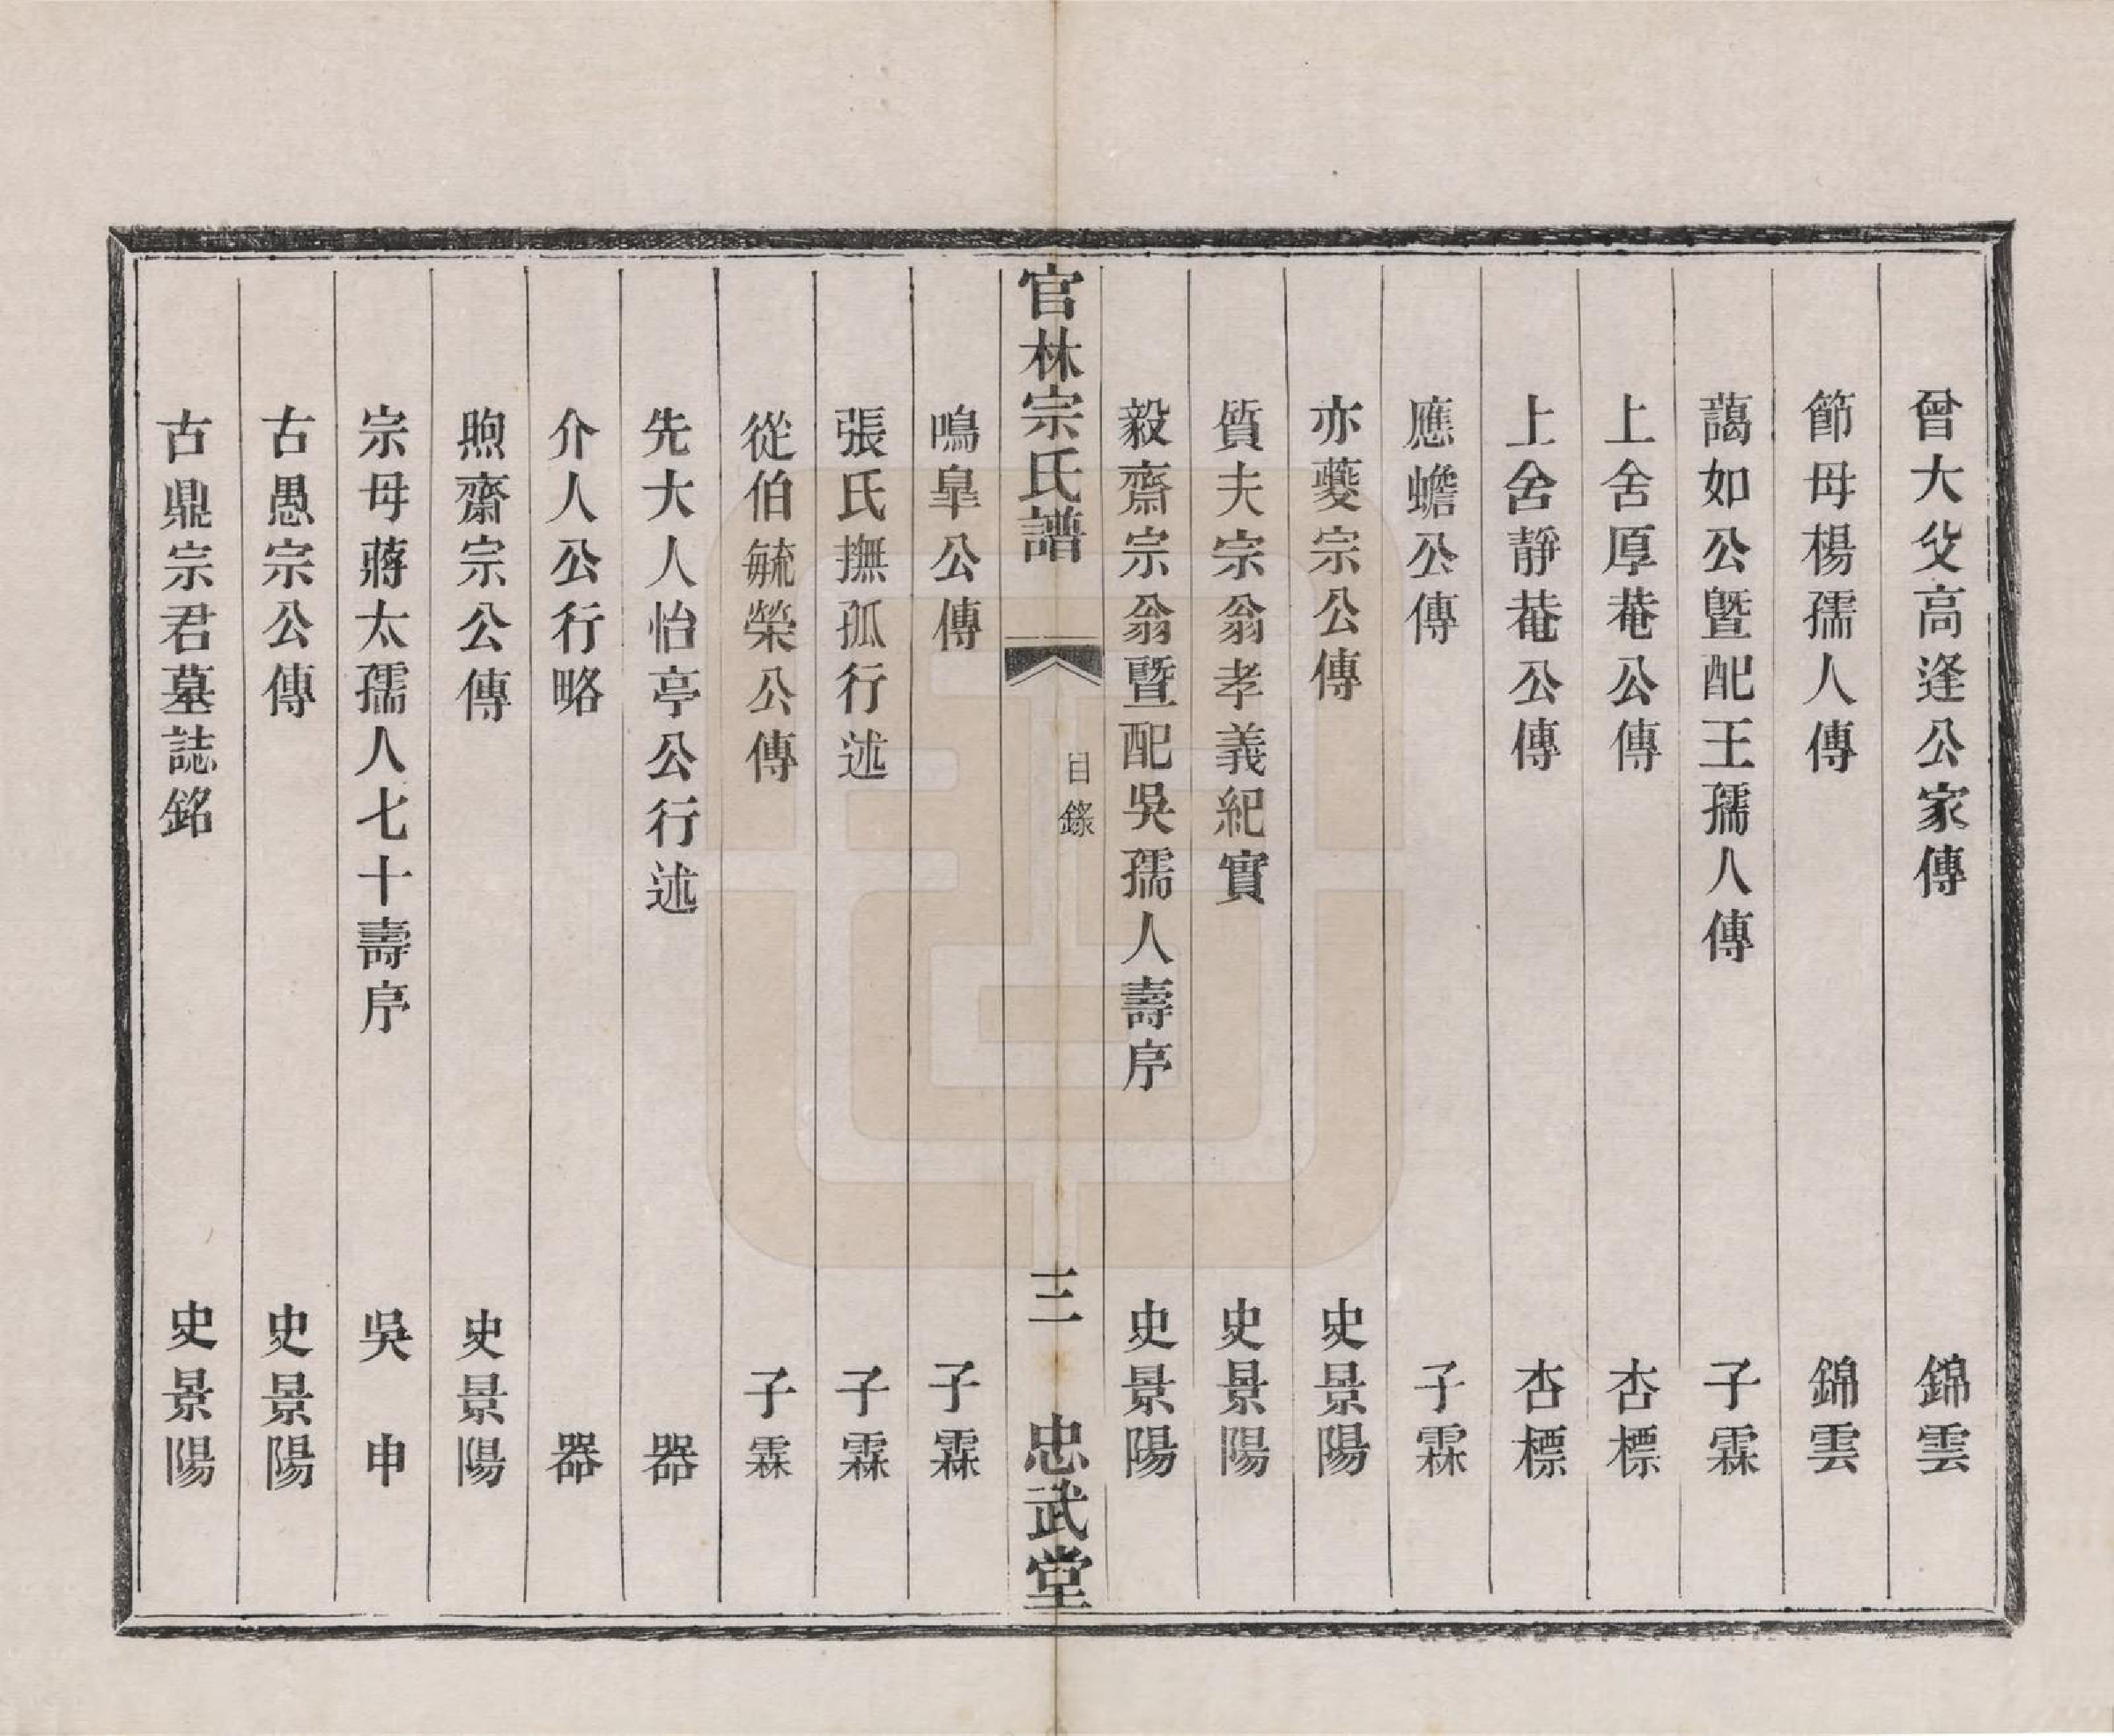 曾大父高逢公家傳　錦雲
節母楊孺人傳　錦雲
藹如公暨配王孺人傳　子霖
上舍厚菴公傳　杏標
上舍靜菴公傳　杏標
應蟾公傳　子霖
亦夔宗公傳　史景陽
質夫宗翁孝義紀實　史景陽
毅齋宗翁暨配吳孺人壽序　史景陽
官林宗氏譜　目錄　三　忠武堂
鳴皐公傳　子霖
張氏撫孤行述　子霖
從伯毓榮公傳　子霖
先大人怡亭公行述　器
介人公行略　器
煦齋宗公傳　史景陽
宗母蔣太孺人七十壽序　吳申
古愚宗公傳　史景陽
古鼎宗君墓誌銘　史景陽